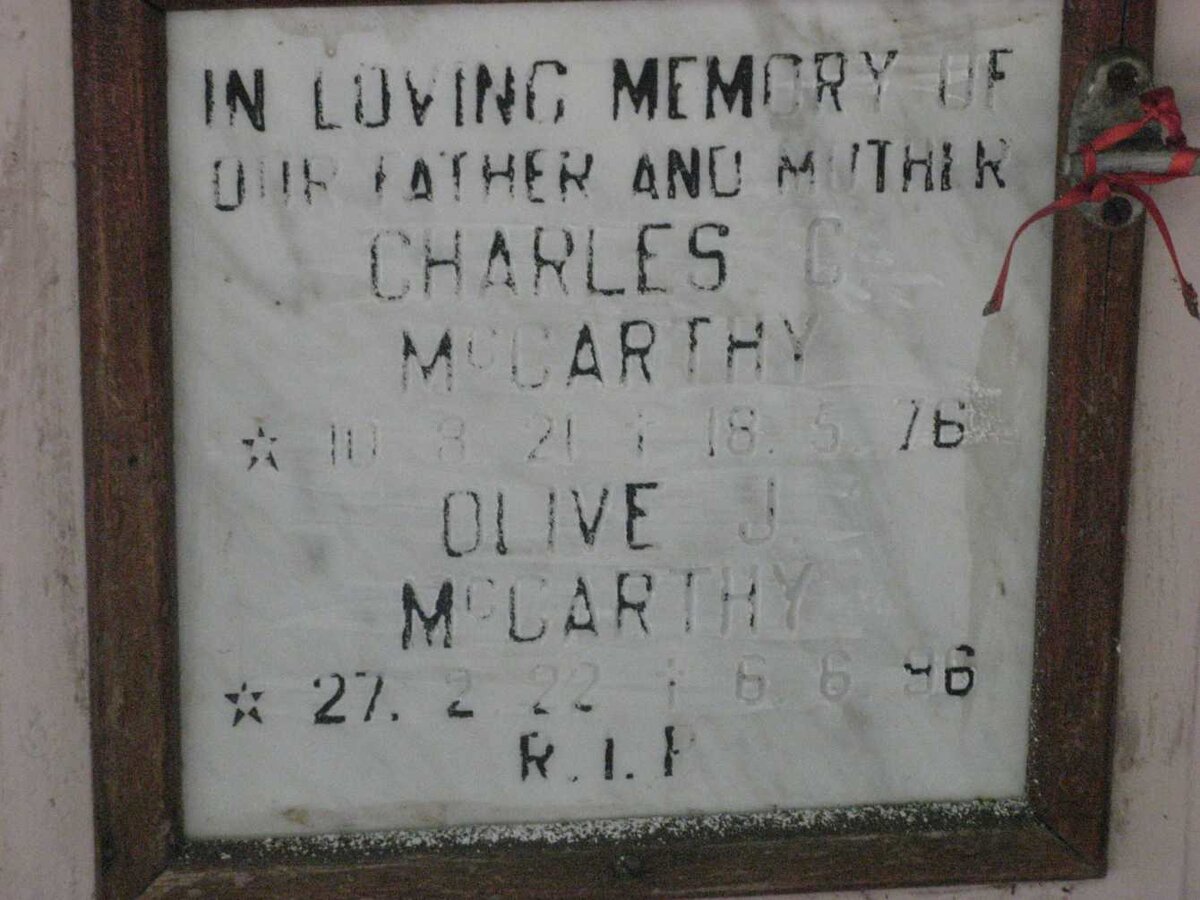 IN LOVING MEMORY OF
OUR FATHER AND MOTHER
CHARLES C
McCARTHY
☆ 10 8. 21 † 18. 5. 76
OLIVE J.
McCARTHY
☆ 27. 2 22 † 6. 6 96
R.I.P